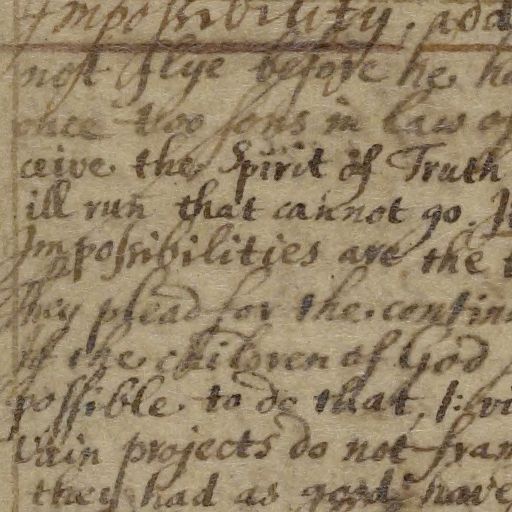 Impossibility. add
not flye before he ha
once two sons in law of
ceive the Spirit of Truth
ill run that cannot go. It
Impossibilities are the
They plead for the contin
of the children of God
possible to do that, 1: vi
Vain projects do not fram
they had as good have